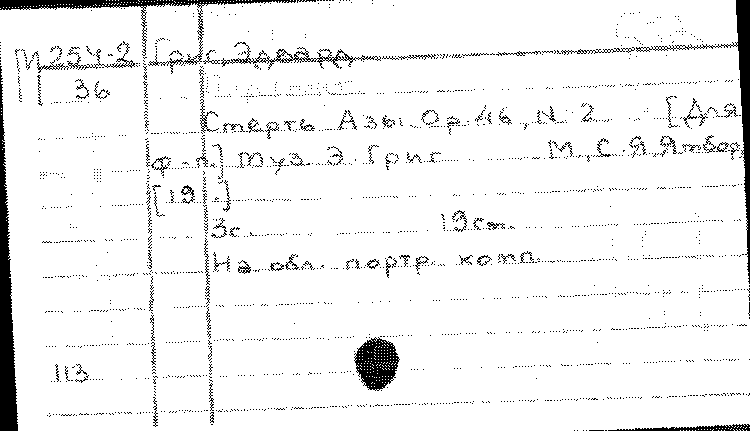 М 254-2 Григ, Эдвард
36
Смерть Азы. Ор. 46, N 2 [Для
ф.-п.] Муз. Э. Григ М., С. Я. Ямбор,
[19 .]
3 с. 19 см.
На обл. портр. комп.
113